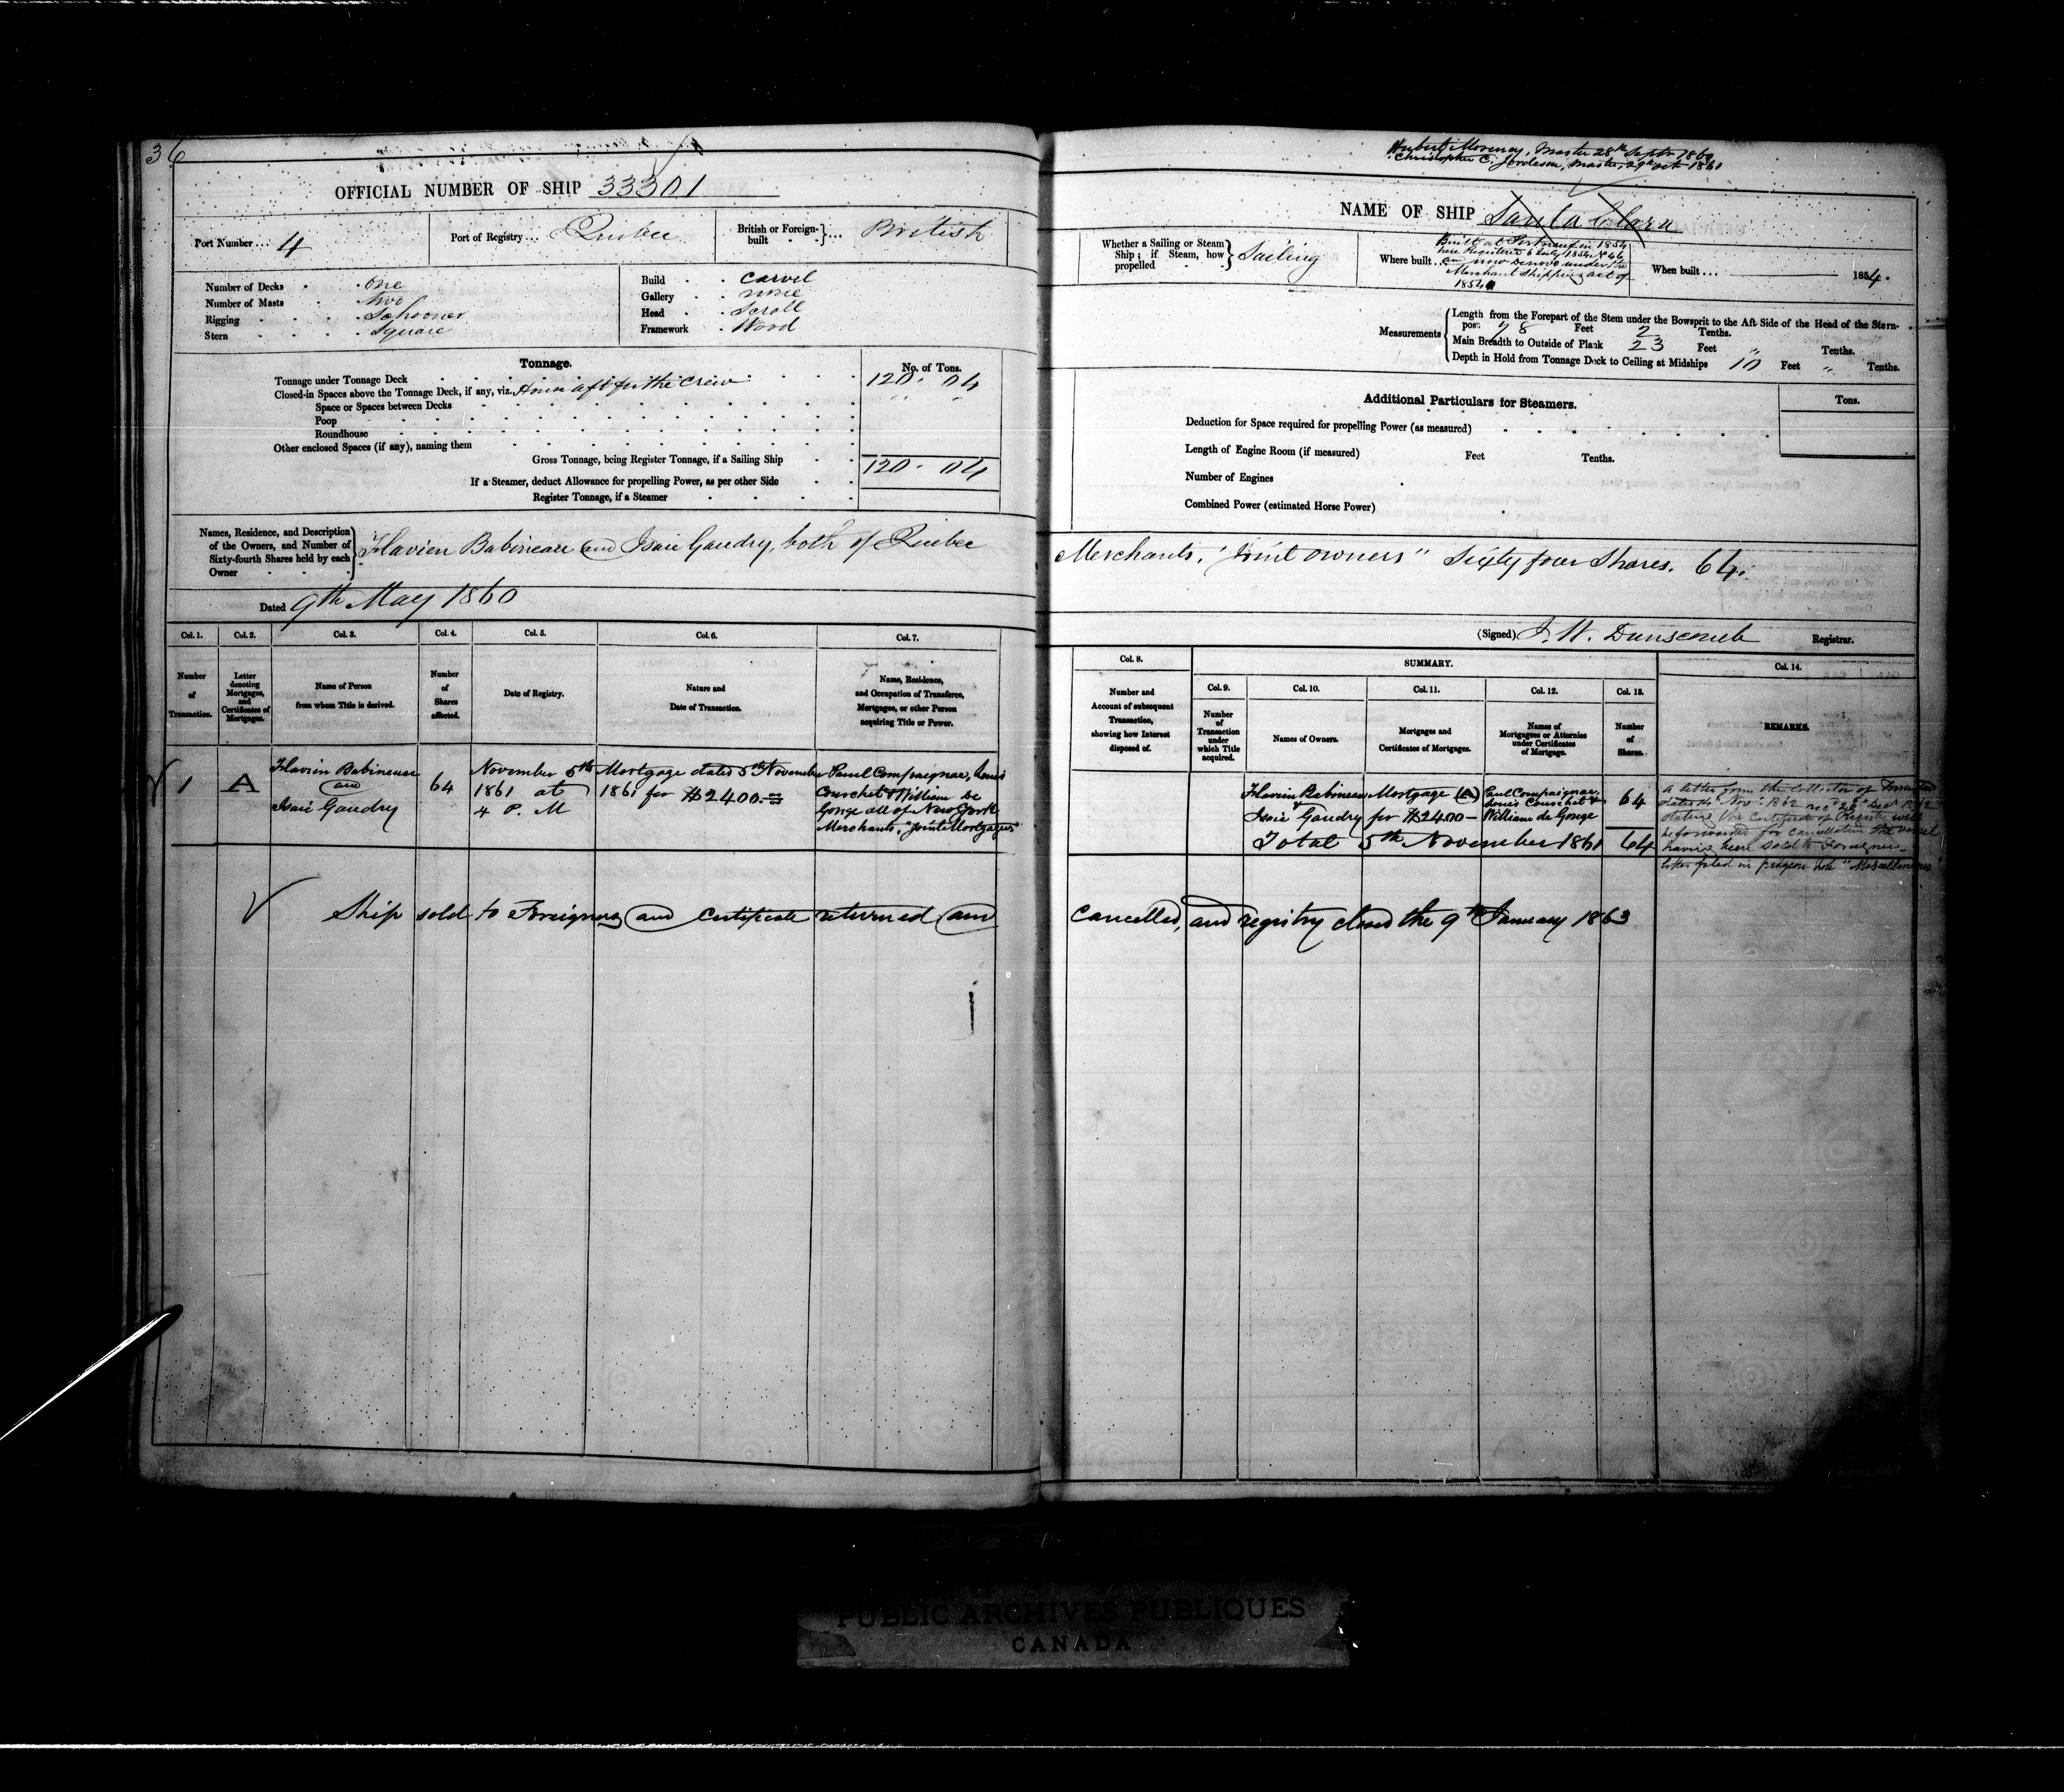 36
OFFICIAL NUMBER OF SHIP 33301
Port Number... 4
Port of Registry... Quebec
British or Foreign-built ... British
Number of Decks . . one
Number of Masts . . two
Rigging . . . . Schooner
Stern . . . . Square
Build . . Carvel
Gallery . . none
Head . . Scroll
Framework . Wood
Tonnage.
No. of Tons.
Tonnage under Tonnage Deck 120. 04
Closed-in Spaces above the Tonnage Deck, if any, viz. House aft for the crew " "
Space or Spaces between Decks
Poop
Roundhouse
Other enclosed Spaces (if any), naming them
Gross Tonnage, being Register Tonnage, if a Sailing Ship 120. 04
If a Steamer, deduct Allowance for propelling Power, as per other Side
Register Tonnage, if a Steamer
Names, Residence, and Description of the Owners, and Number of Sixty-fourth Shares held by each Owner
Flavien Babineau and Isaie Gaudry, both of Quebec
Dated 9th May 1860
Col. 1. Col. 2. Col. 3. Col. 4. Col. 5. Col. 6. Col. 7.
Number of Transaction.
Letter denoting Mortgages, and Certificates of Mortgages.
Name of Person from whom Title is derived.
Number of Shares affected.
Date of Registry.
Nature and Date of Transaction.
Name, Residence, and Occupation of Transferee, Mortgagee, or other Person acquiring Title or Power.
1
A
Flavien Babineau
and
Isaie Gaudry
64
November 5th
1861 at
4 P. M
Mortgage dated 5th November
1861 for $2400.
Paul Compaignac, Louis
Courchet & William De
Gonge all of New York
Merchants, "Joint Mortgagees"
Ship sold to Foreigners and Certificate returned and
Master 28th Septr 1860
Christopher C. Master, 29th Oct 1861
NAME OF SHIP Santa Clara
Whether a Sailing or Steam Ship; if Steam, how propelled Sailing
Where built...
Built at Portneuf in 1854
here Registered 6 July 1854 No 46
and now denovo under the
Merchant Shipping act of
1854
When built ... 1854.
Measurements
Length from the Forepart of the Stem under the Bowsprit to the Aft Side of the Head of the Stern-
post 78 Feet 2 Tenths.
Main Breadth to Outside of Plank 23 Feet " Tenths.
Depth in Hold from Tonnage Deck to Ceiling at Midships 10 Feet " Tenths.
Additional Particulars for Steamers.
Tons.
Deduction for Space required for propelling Power (as measured)
Length of Engine Room (if measured) Feet Tenths.
Number of Engines
Combined Power (estimated Horse Power)
Merchants, "Joint owners" Sixty four Shares. 64.
(Signed) J. W. Dunscomb Registrar.
Col. 8.
SUMMARY.
Col. 14.
Col. 9. Col. 10. Col. 11. Col. 12. Col. 13.
Number and Account of subsequent Transaction, showing how Interest disposed of.
Number of Transaction under which Title acquired.
Names of Owners.
Mortgages and Certificates of Mortgages.
Names of Mortgagees or Attornies under Certificates of Mortgage.
Number of Shares.
REMARKS.
Flavien Babineau
&
Isaie Gaudry
Mortgage (A)
for $2400 —
Paul Compaignac,
Louis Courchet &
William de Gonge
64
Total 5th November 1861 64
a letter from the Collector of
dated Novr 1862 recd Decr 1862
stating the Certificate of Registry will
be forwarded for cancellation the vessel
having been sold to Foreigners
letter filed in pidgeon hole "Miscellaneous"
cancelled, and registry closed the 9th January 1863
PUBLIC ARCHIVES PUBLIQUES
CANADA